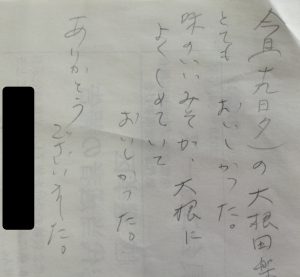 今日(十九日夕)の大根田楽
とても おいしかった。
味のいいみそが、大根に
よくしめていて
おいしかった。
ありがとう
ございました。